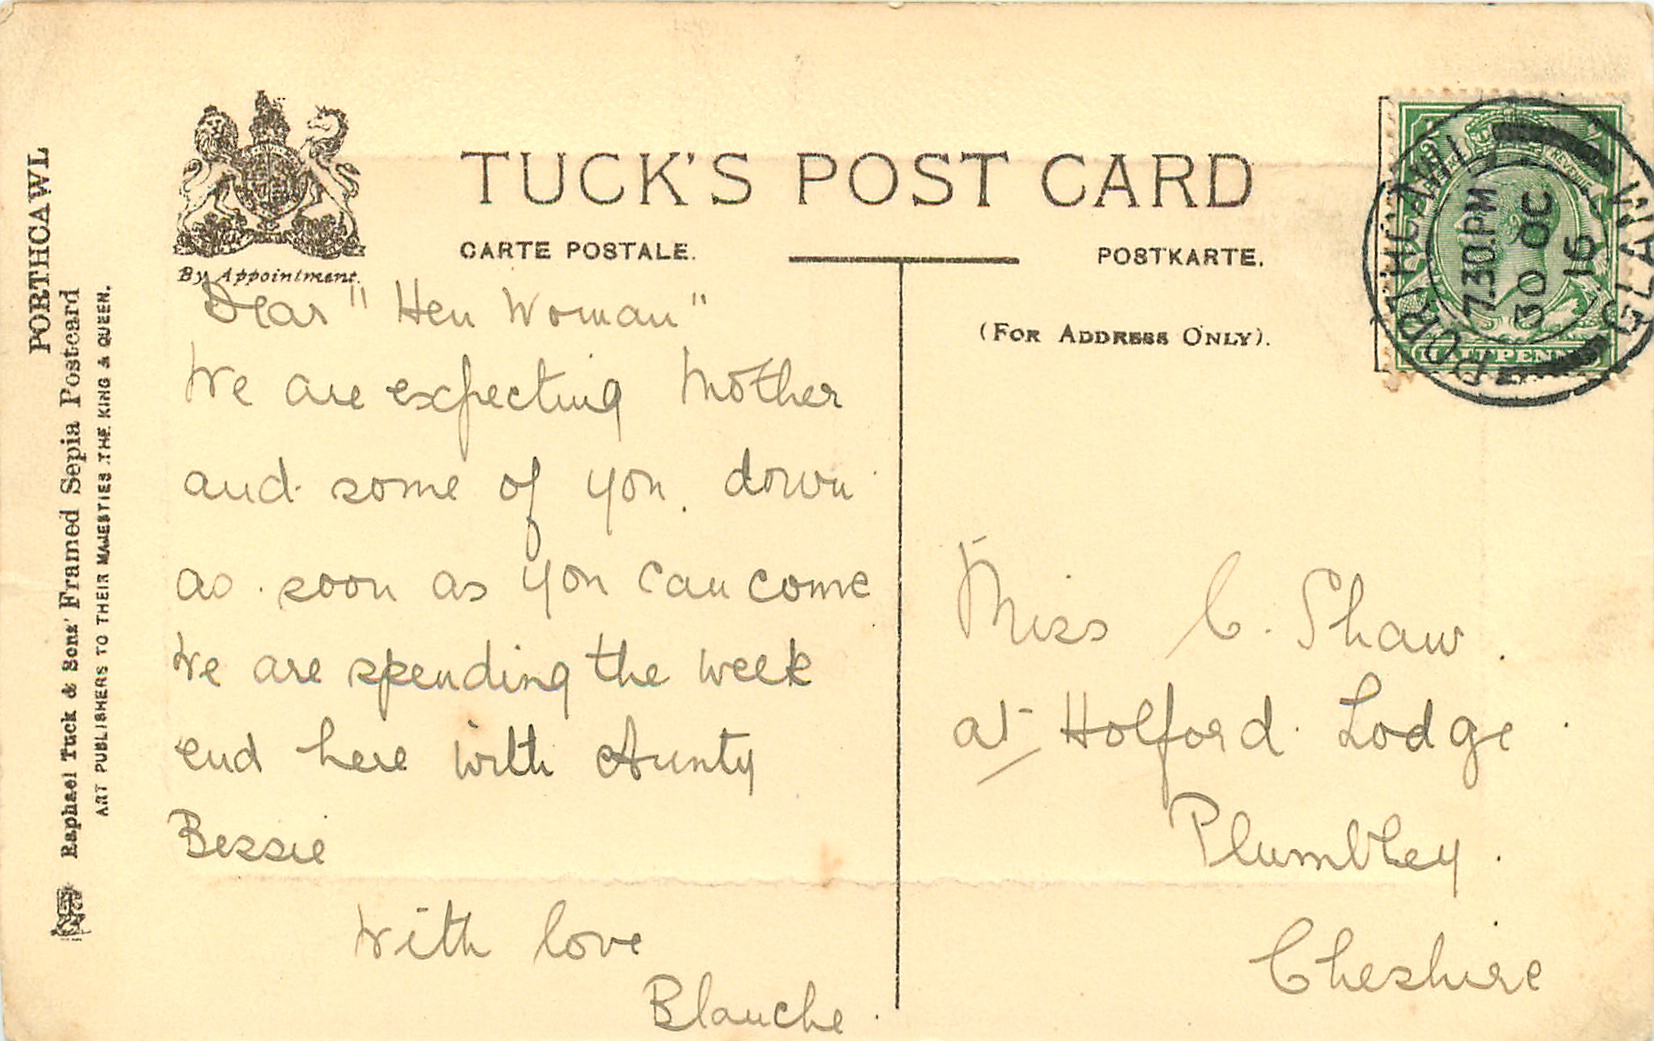 PORTHCAWL
Raphael Tuck & Sons' Framed Sepia Postcard
ART PUBLISHERS TO THEIR MAJESTIES THE KING & QUEEN.
By Appointment.
TUCK'S POST CARD
CARTE POSTALE.
POSTKARTE.
(FOR ADDRESS ONLY).
PORTHCAWL
GLAM
7.30 PM
30 OC
16
HALFPENNY
Dear "Hen Woman"
We are expecting Mother
and some of you down
as soon as you can come
We are spending the week
end here with Aunty
Bessie
With love
Blanche.
Miss C. Shaw.
at Holford Lodge
Plumbley.
Cheshire